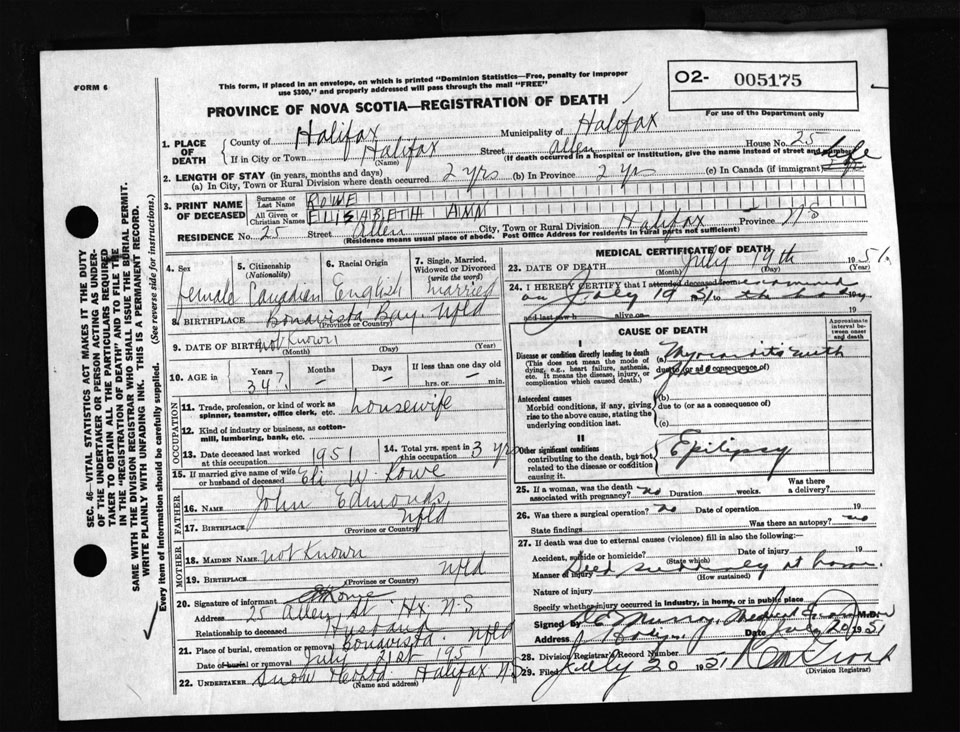 FORM 6
This form, if placed in an envelope, on which is printed "Dominion Statistics—Free, penalty for improper
use $300," and properly addressed will pass through the mail "FREE"
O2- 005175
For use of the Department only
PROVINCE OF NOVA SCOTIA—REGISTRATION OF DEATH
1. PLACE OF DEATH
County of Halifax Municipality of Halifax
If in City or Town Halifax Street Allen House No. 25
(Name) (If death occurred in a hospital or institution, give the name instead of street and number)
2. LENGTH OF STAY (in years, months and days)
(a) In City, Town or Rural Division where death occurred 2 yrs (b) In Province 2 yrs (c) In Canada (if immigrant) Life
3. PRINT NAME OF DECEASED
Surname or Last Name ROWE
All Given or Christian Names ELISABETH ANN
RESIDENCE No. 25 Street Allen City, Town or Rural Division Halifax Province NS
(Residence means usual place of abode. Post Office Address for residents in rural parts not sufficient)
4. Sex female
5. Citizenship (Nationality) Canadian
6. Racial Origin English
7. Single, Married, Widowed or Divorced (write the word) married
8. BIRTHPLACE Bonavista Bay. Nfld
(Province or Country)
9. DATE OF BIRTH not known
(Month) (Day) (Year)
10. AGE in Years 34? Months — Days — If less than one day old hrs. or — min.
OCCUPATION
11. Trade, profession, or kind of work as spinner, teamster, office clerk, etc. housewife
12. Kind of industry or business, as cotton-mill, lumbering, bank, etc.
13. Date deceased last worked at this occupation 1951
14. Total yrs. spent in this occupation 3 yrs
15. If married give name of wife or husband of deceased Eli W Rowe
FATHER
16. NAME John Edmonds
17. BIRTHPLACE Nfld
(Province or Country)
MOTHER
18. MAIDEN NAME not known
19. BIRTHPLACE Nfld
(Province or Country)
20. Signature of informant Rowe
Address 25 Allen St Hx N-S
Relationship to deceased Husband
21. Place of burial, cremation or removal Bonavista. Nfld
Date of burial or removal July 21st 1951
22. UNDERTAKER Snow Halifax NS
(Name and address)
MEDICAL CERTIFICATE OF DEATH
23. DATE OF DEATH July 19th 1951.
(Month) (Day) (Year)
24. I HEREBY CERTIFY that I attended deceased from examined
on July 19 51 to the body 19
and last saw h alive on 19
CAUSE OF DEATH
Approximate interval between onset and death
I
Disease or condition directly leading to death
(This does not mean the mode of dying, e.g., heart failure, asthenia, etc. It means the disease, injury, or complication which caused death.)
(a) Myocarditis with
due to (or as consequence of)
Antecedent causes
Morbid conditions, if any, giving rise to the above cause, stating the underlying condition last.
(b)
due to (or as a consequence of)
(c)
II
Other significant conditions
contributing to the death, but not related to the disease or condition causing it.
Epilepsy
25. If a woman, was the death associated with pregnancy? no Duration weeks. Was there a delivery?
26. Was there a surgical operation? no Date of operation 19
State findings Was there an autopsy? no
27. If death was due to external causes (violence) fill in also the following:—
Accident, suicide or homicide? Date of injury 19
(State which)
Manner of injury Died suddenly at home
(How sustained)
Nature of injury
Specify whether injury occurred in industry, in home, or in public place
Signed by Murray, Medical Examiner M.D.
Address Date July 20 1951
28. Division Registrar's Record Number
29. Filed July 20 1951
(Division Registrar)
SEC. 46—VITAL STATISTICS ACT MAKES IT THE DUTY
OF THE UNDERTAKER OR PERSON ACTING AS UNDER-
TAKER TO OBTAIN ALL THE PARTICULARS REQUIRED
IN THE "REGISTRATION OF DEATH" AND TO FILE THE
SAME WITH THE DIVISION REGISTRAR WHO SHALL ISSUE THE BURIAL PERMIT.
WRITE PLAINLY WITH UNFADING INK. THIS IS A PERMANENT RECORD.
Every item of information should be carefully supplied. (See reverse side for instructions.)